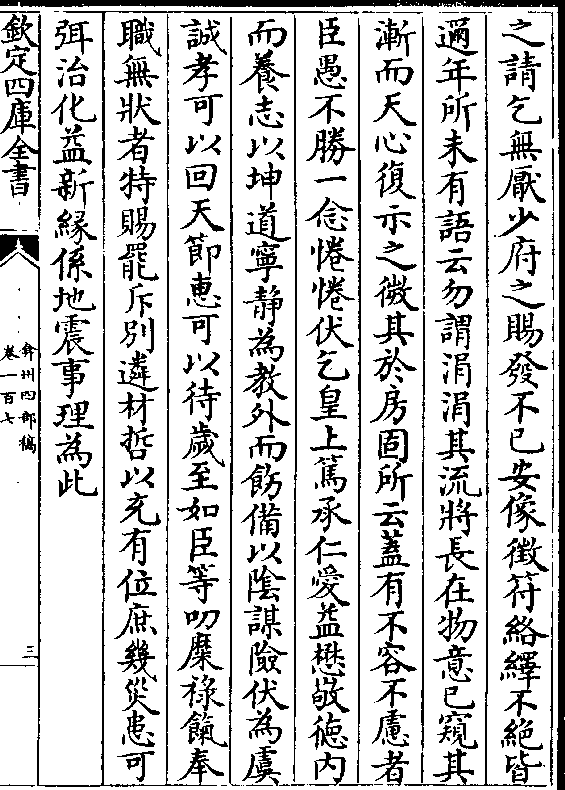 之請乞無厭少府之賜發不已妄像徵符絡繹不絕皆
邇年所未有語云勿謂涓涓其流將長在物意已窺其
漸而天心復示之微其於房固所云蓋有不容不慮者
臣愚不勝一念惓惓伏乞皇上篤承仁愛益懋敬德内
而養志以坤道寧静為教外而飭備以陰謀險伏為虞
誠孝可以回天節惠可以待歲至如臣等叨糜祿餼奉
職無狀者特賜罷斥別遴材哲以充有位庶幾災患可
弭治化益新緣係地震事理為此
欽定四庫全書
弇州四部稿
卷一百七
三